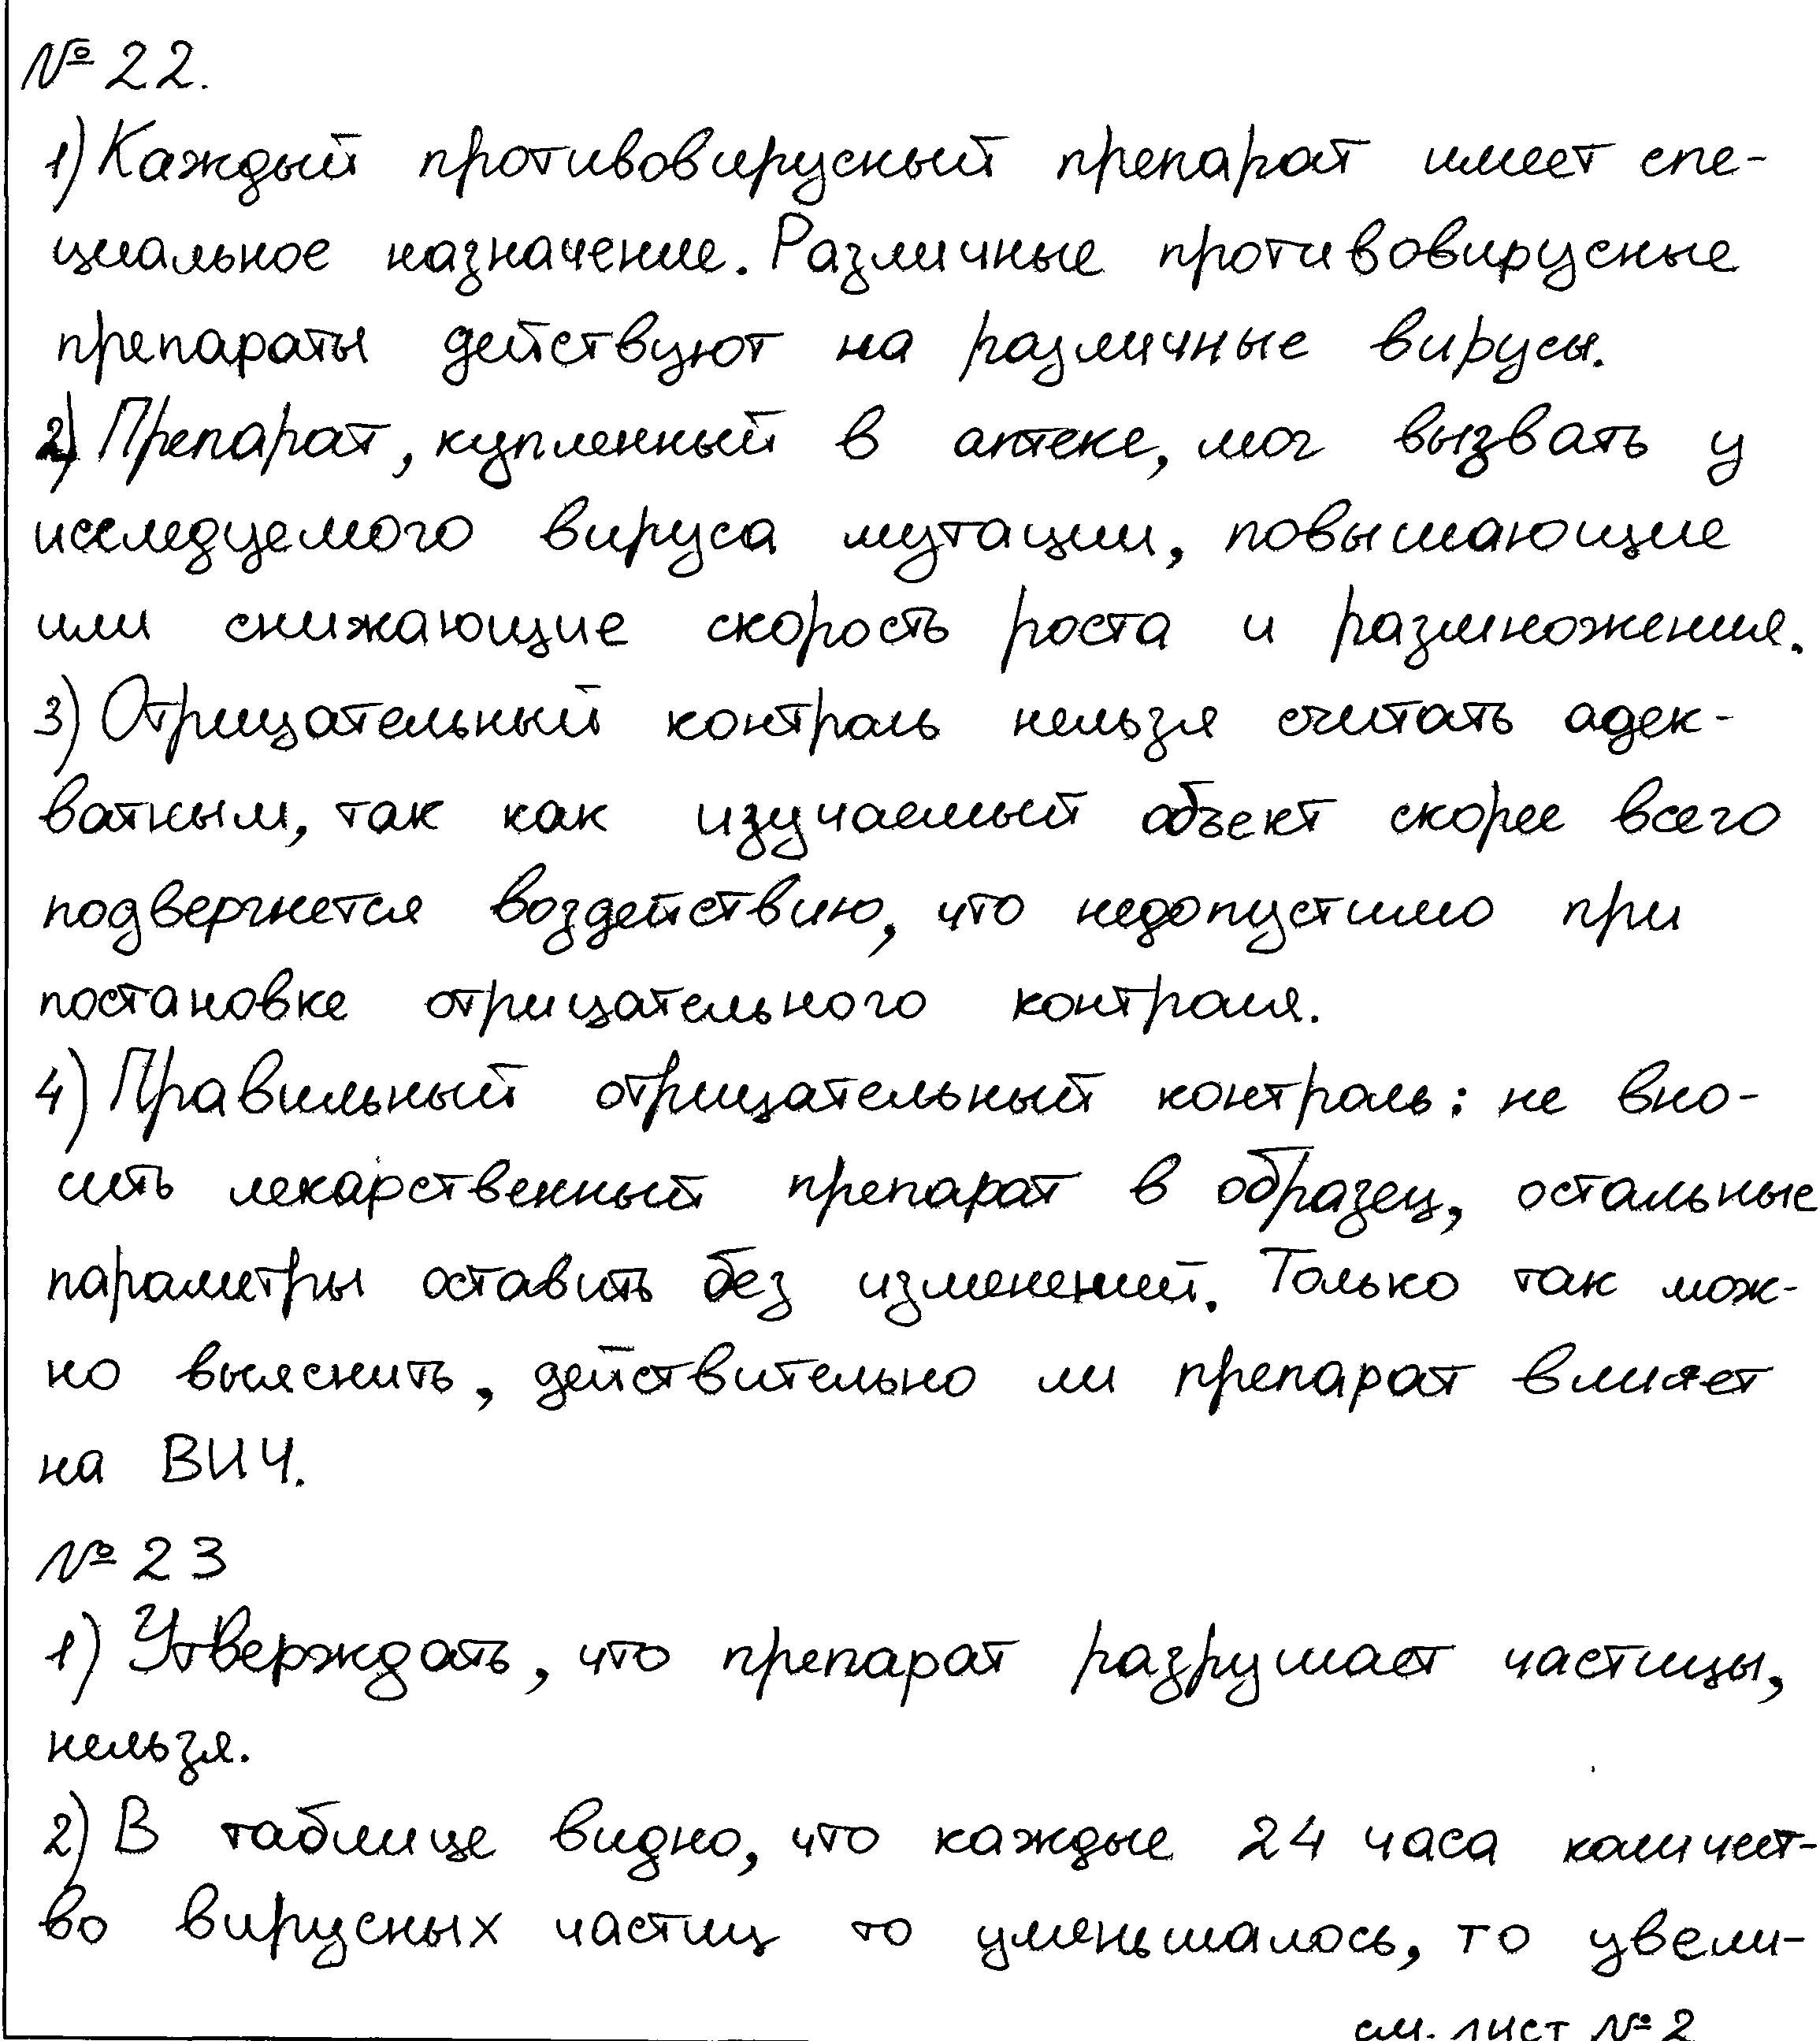 № 22.
1) Каждый противовирусный препарат имеет спе-
циальное назначение. Различные противовирусные
препараты действуют на различные вирусы.
2) Препарат, купленный в аптеке, мог вызвать у
исследуемого вируса мутации, повышающие
или снижающие скорость роста и размножения.
3) Отрицательный контроль нельзя считать адек-
ватным, так как изучаемый объект скорее всего
подвергнется воздействию, что недопустимо при
постановке отрицательного контроля.
4) Правильный отрицательный контроль: не вно-
сить лекарственный препарат в образец, остальные
параметры оставить без изменений. Только так мож-
но выяснить, действительно ли препарат влияет
на ВИЧ.
№ 23
1) Утверждать, что препарат разрушает частицы,
нельзя.
2) В таблице видно, что каждые 24 часа количест-
во вирусных частиц то уменьшалось, то увели-
см. лист № 2